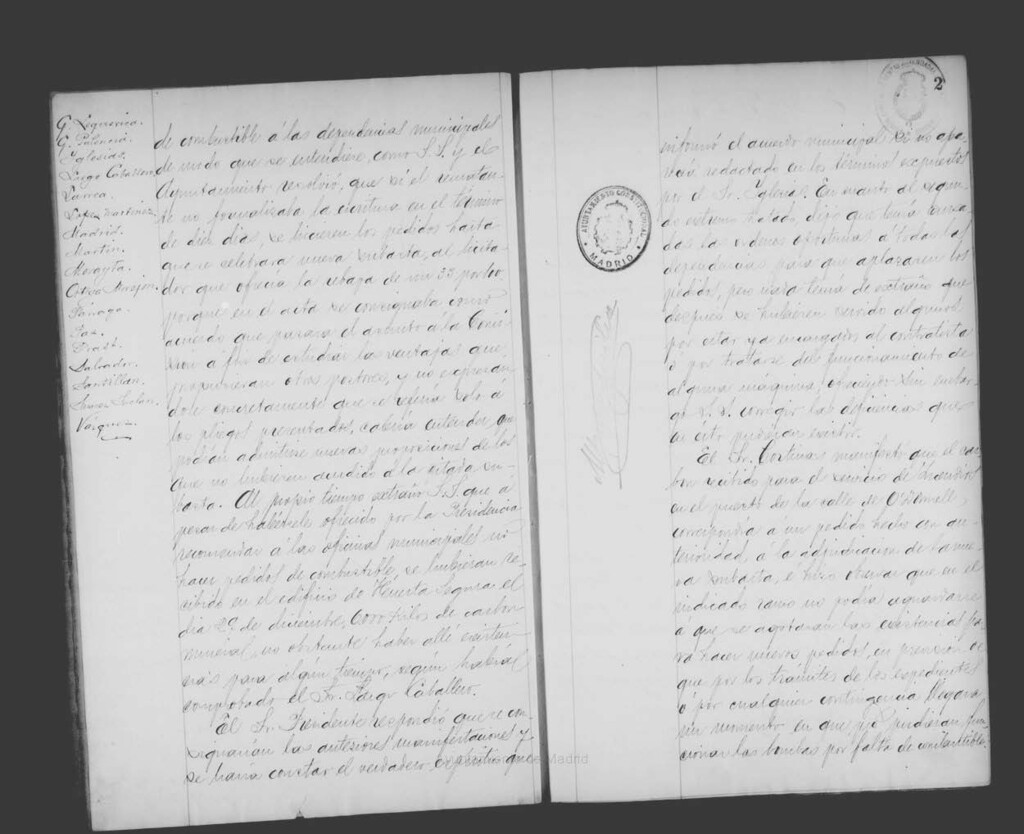 G. Lequerica.
G. Palencia
Iglesias.
Largo Caballero
Larrea.
López Martínez
Madrid.
Martín.
Morayta.
Párraga.
Paz.
Prast.
Salvador.
Santillán.
Vázquez.
de combustible á las dependencias municipales
de modo que se entendiese, como S.S. y el
Ayuntamiento resolvió, que si el rematan-
te no formalizaba la escritura en el término
de diez dias, se hicieren los pedidos hasta
que se celebrara nueva subasta, al licita-
dor que ofrecía la rebaja de un 33 por 100
porque en el acta se consignaba como
acuerdo que pasara el asunto á la Comi-
sión á fin de estudiar las ventajas que
propusieran otros postores, y no expresan-
dose concretamente que se refería solo á
los pliegos presentados, cabría entender que
podían admitirse nuevas proposiciones de los
que no hubieran acudido á la citada su-
basta. Al propio tiempo extrañó S.S. que á
pesar de habérsele ofrecido por la Presidencia
recomendar á las oficinas municipales no
hacer pedidos de combustible, se hubieran re-
cibido en el edificio de Huerta Segura el
dia 29 de diciembre, 6.000 kilos de carbon
mineral, no obstante haber allí existen-
cias para algún tiempo, según había
comprobado el Sr. Largo Caballero.
El Sr. Presidente respondió que se con-
signarían las anteriores manifestaciones y
se haría constar el verdadero espíritu que
2
informó el acuerdo municipal si no apa-
recía redactado en los términos expuestos
por el Sr. Iglesias. En cuanto al segun-
do extremo tratado dijo que tenía cursa-
das las ordenes oportunas á todas las
dependencias para que aplazaren los
pedidos, pero nada tenía de extraño que
después se hubieren servido algunos
por estar ya encargados al contratista
ó por tratarse del funcionamiento de
alguna máquina, ofreciendo sin embar-
go S.S. corregir las deficiencias que
en esto pudieran existir.
El Sr. Cortinas manifestó que el car-
bon recibido para el servicio de Incendios
en el puesto de la calle de O'Donnell,
correspondía á un pedido hecho con an-
terioridad á la adjudicacion de la nue-
va subasta, é hizo observar que en el
indicado ramo no podía aguardarse
á que se agotaran las existencias pa-
ra hacer nuevos pedidos, en prevision de
que por los trámites de los expedientes
ó por cualquier contingencia llegara
un momento en que no pudieran fun-
cionar las bombas por falta de combustible.
AYUNTAMIENTO CONSTITUCIONAL
MADRID